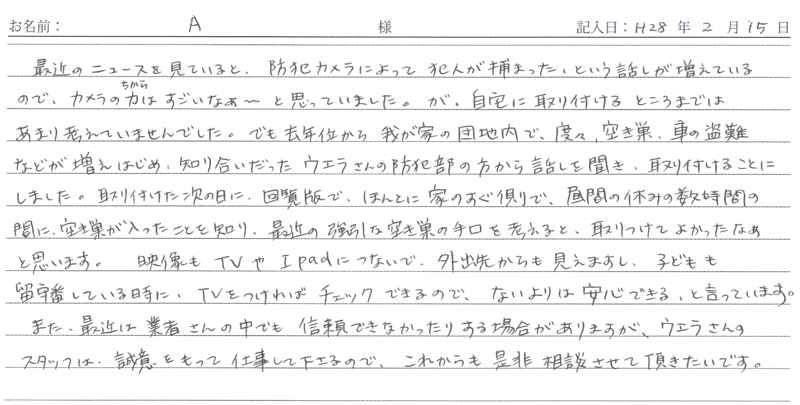 お名前： A 様 記入日：H28 年 2 月 15 日
最近のニュースを見ていると、防犯カメラによって 犯人が捕まった、という話しが増えている
ので、カメラの力(ちから)は すごいなぁ〜 と思っていました。が、自宅に取り付ける ところまでは
あまり考えていませんでした。でも去年位から 我が家の団地内で、度々、空き巣、車の盗難
などが増えはじめ、知り合いだった ウエラさんの防犯部の方から 話しを聞き、取り付けることに
しました。取り付けた次の日に、回覧版で、ほんとに 家のすぐ側りで、昼間の休みの数時間の
間に、空き巣が入ったことを知り、最近の 強引な空き巣の手口を考えると、取りつけてよかったなぁ
と思います。 映像も TVや Ipadにつないで、外出先からも 見えますし、子どもも
留守番している時に、TVをつければ チェックできるので、ないよりは 安心できる、と言っています。
また、最近は 業者さんの中でも 信頼できなかったりする場合がありますが、ウエラさんの
スタッフは、誠意をもって 仕事して下さるので、これからも 是非 相談させて頂きたいです。